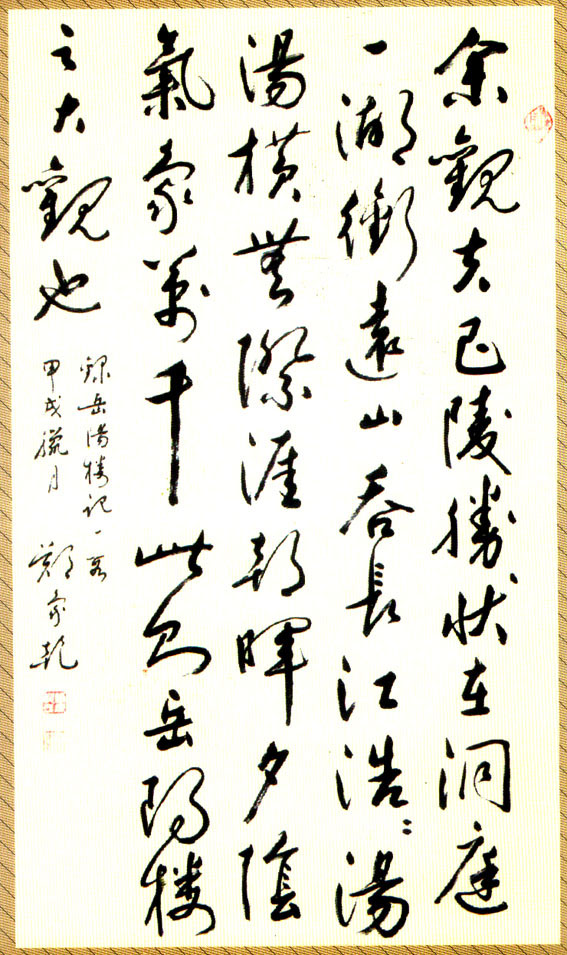 余觀夫巴陵勝狀在洞庭
一湖銜遠山吞長江浩〻湯
湯橫無際涯朝暉夕陰
氣象萬千此則岳陽樓
之大觀也
錄岳陽樓記一段
甲戌臘月 鄭家乾